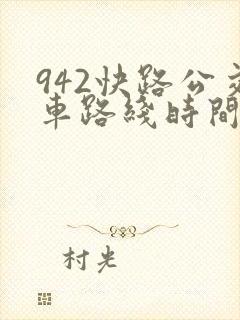 942快路公交
車路綫時間
村光